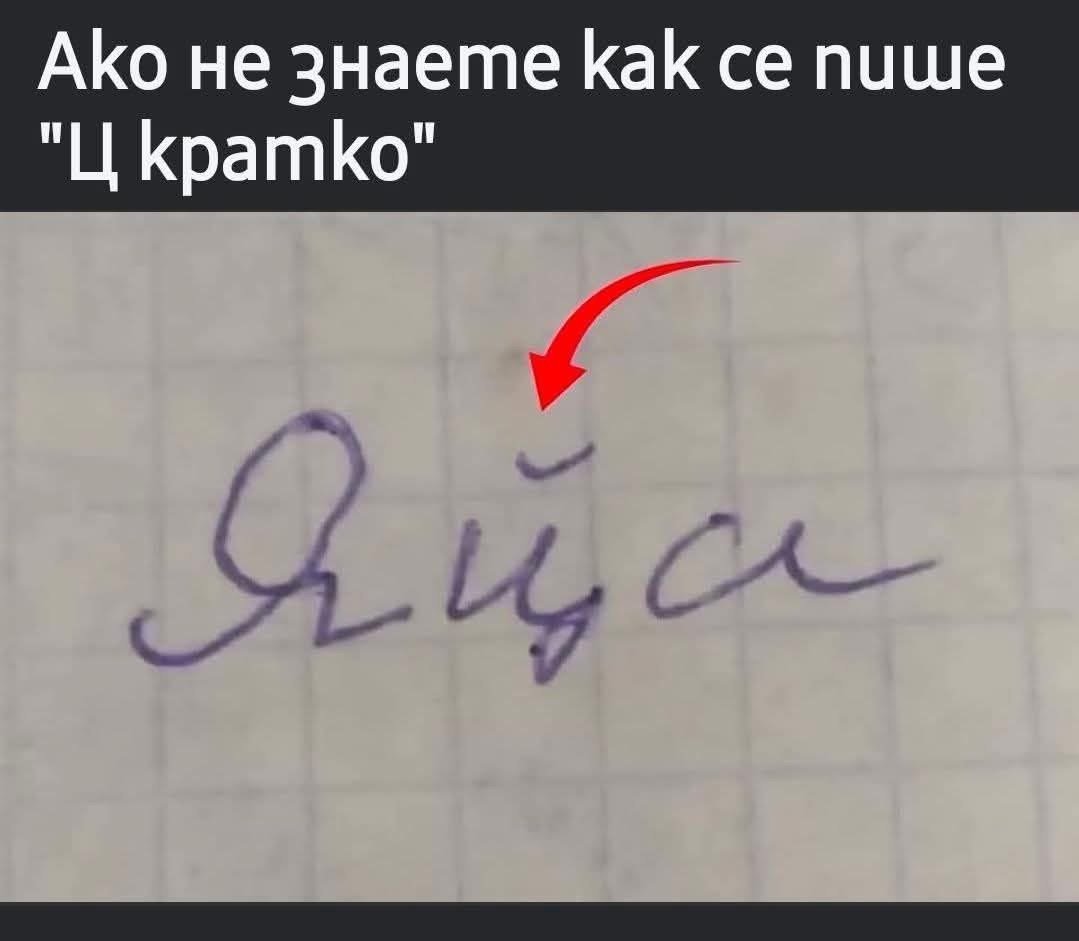 Ако не знаете как се пише
"Ц кратко"
Яц̆а